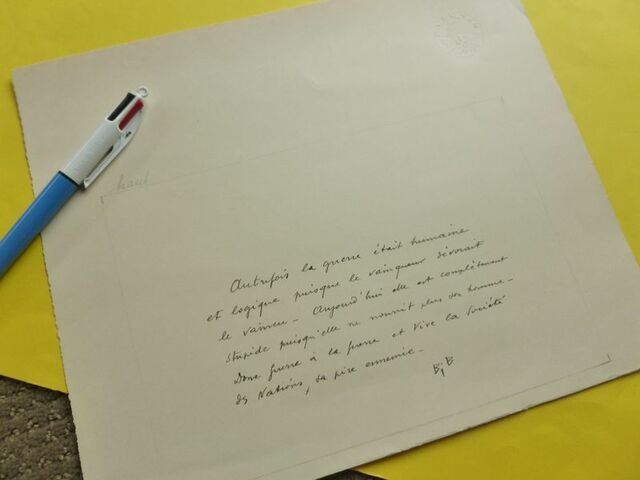 haut
Autrefois la guerre était humaine
et logique puisque le vainqueur dévorait
le vaincu - Aujourd'hui elle est complètement
stupide puisqu'elle ne nourrit plus son homme -
Donc guerre à la guerre et vive la Société
des Nations, sa pire ennemie -
BiB